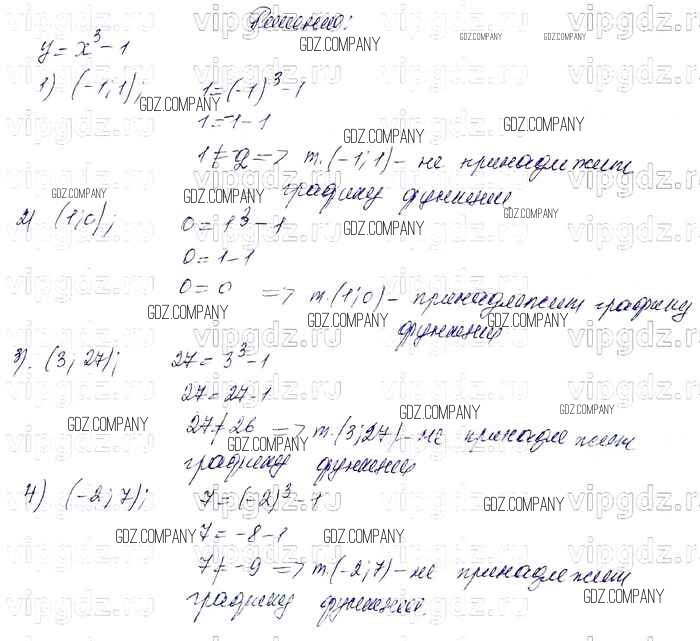 Решение:
y = x³ - 1
1) (-1; 1); 1 = (-1)³ - 1
1 = -1 - 1
1 ≠ -2 => т. (-1; 1) - не принадлежит
графику функции
2) (1; 0); 0 = 1³ - 1
0 = 1 - 1
0 = 0 => т. (1; 0) - принадлежит графику
функции
3). (3; 27); 27 = 3³ - 1
27 = 27 - 1
27 ≠ 26 => т. (3; 27) - не принадлежит
графику функции
4) (-2; 7); 7 = (-2)³ - 1
7 = -8 - 1
7 ≠ -9 => т. (-2; 7) - не принадлежит
графику функции.
GDZ.COMPANY
vipgdz.ru